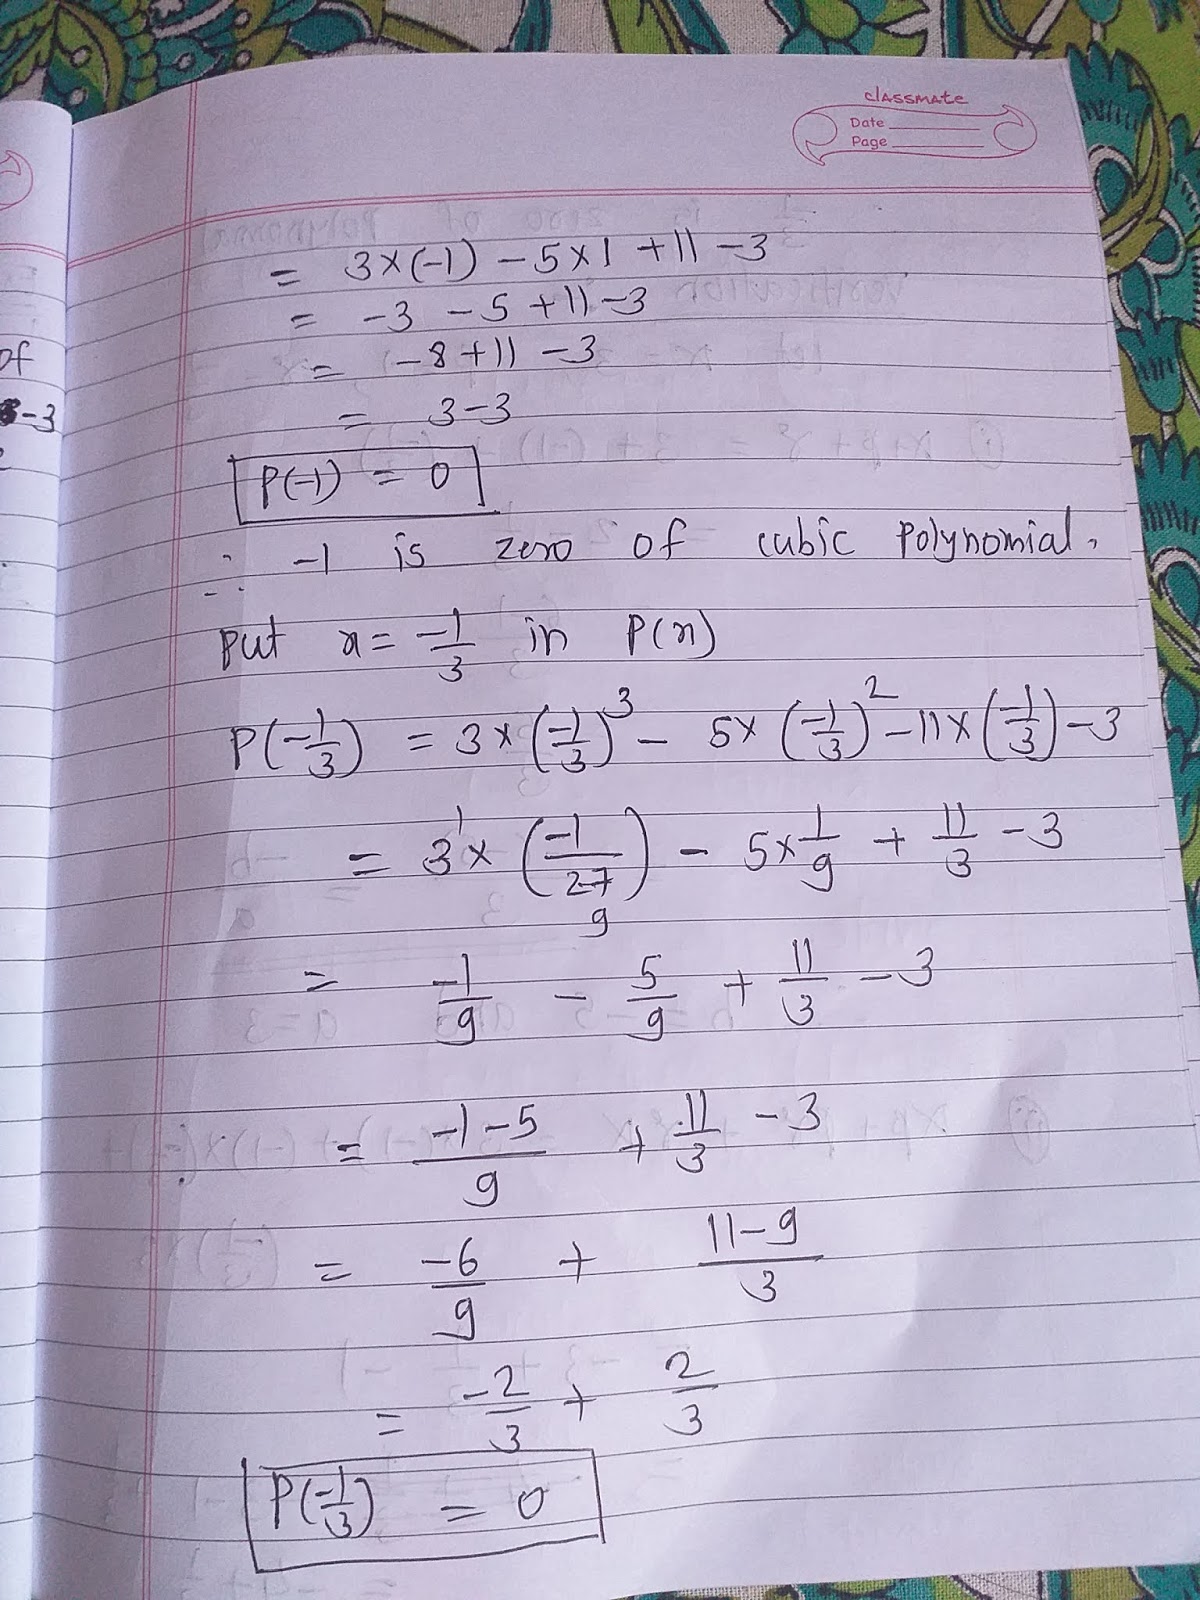 classmate
Date
Page
= 3×(-1) - 5×1 + 11 - 3
= -3 - 5 + 11 - 3
= -8 + 11 - 3
= 3 - 3
P(-1) = 0
∴ -1 is zero of cubic polynomial.
Put x = -1/3 in P(x)
P(-1/3) = 3 × (-1/3)³ - 5× (-1/3)² - 11× (-1/3) - 3
= 3¹ × (-1/27) - 5×1/9 + 11/3 - 3
9
= -1/9 - 5/9 + 11/3 - 3
= -1-5/9 + 11/3 - 3
= -6/9 + 11-9/3
= -2/3 + 2/3
P(-1/3) = 0
of
-3